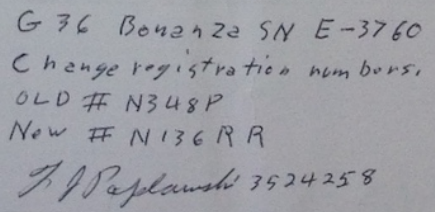 G 36 Bonanza SN E-3760
Change registration numbers.
OLD # N348P
New # N136RR
3524258